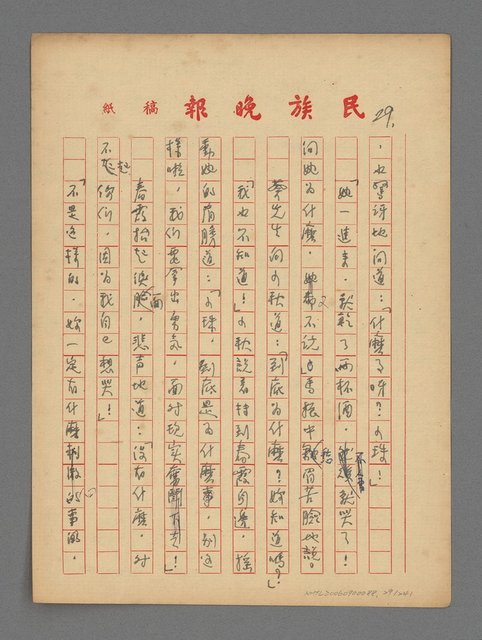 民族晚報稿紙
29.
，也驚訝地問道：「什麼了呀？小珠！」
「她一進來，就乾了兩杯酒，就哭了！
問她為什麼，她又不說」香振中皺眉苦臉地說。
蔡先生問小秋道：「到底為什麼？妳知道嗎？」
「我也不知道！」小秋說着轉到春霞身邊，搖
動她的肩膀道：「小珠，到底是為什麼事，別這
樣啦，我們要拿出勇氣，面對現實奮鬥下去！」
春霞抬起淚臉，悲聲地道：「沒有什麼，對
不起你們，因為我自己想哭！」
「不是這樣的，妳一定有什麼刺激的事風，
NMTL20060900088, 29/241